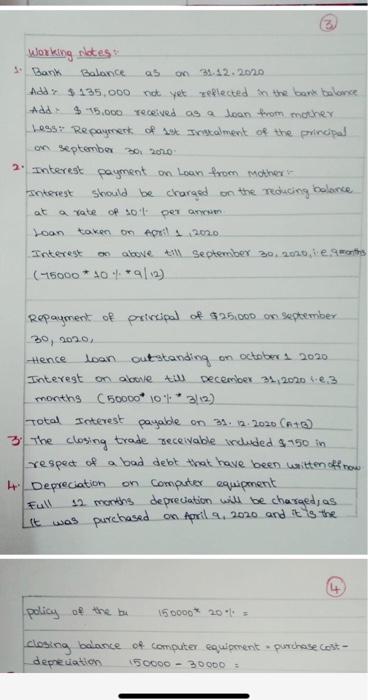 3
Working Notes:
1. Bank Balance as on 31.12.2020
Add: $135,000 not yet reflected in the bank balance
Add: $75,000 received as a loan from mother
Less: Repayment of 1st Instalment of the principal
on september 30, 2020.
2. Interest payment on Loan from Mother:
Interest should be charged on the reducing balance
at a rate of 10% per annum
Loan taken on April 1, 2020
Interest on above till September 30, 2020, i.e, 9 months
(75000 * 10% * 9/12)
Repayment of principal of $25,000 on September
30, 2020,
Hence loan outstanding on october 1 2020
Interest on above till December 31, 2020 i.e. 3
months (50000* 10% * 3/12)
Total Interest payable on 31. 12. 2020 (A+B)
3. The closing trade receivable included $750 in
respect of a bad debt that have been written off now.
4. Depreciation on Computer equipment
Full 12 months depreciation will be charged, as
It was purchased on April 9, 2020 and it is the
4
policy of the bu 150000* 20% =
closing balance of computer equipment = purchase cost -
depreciation 150000 - 30000 =